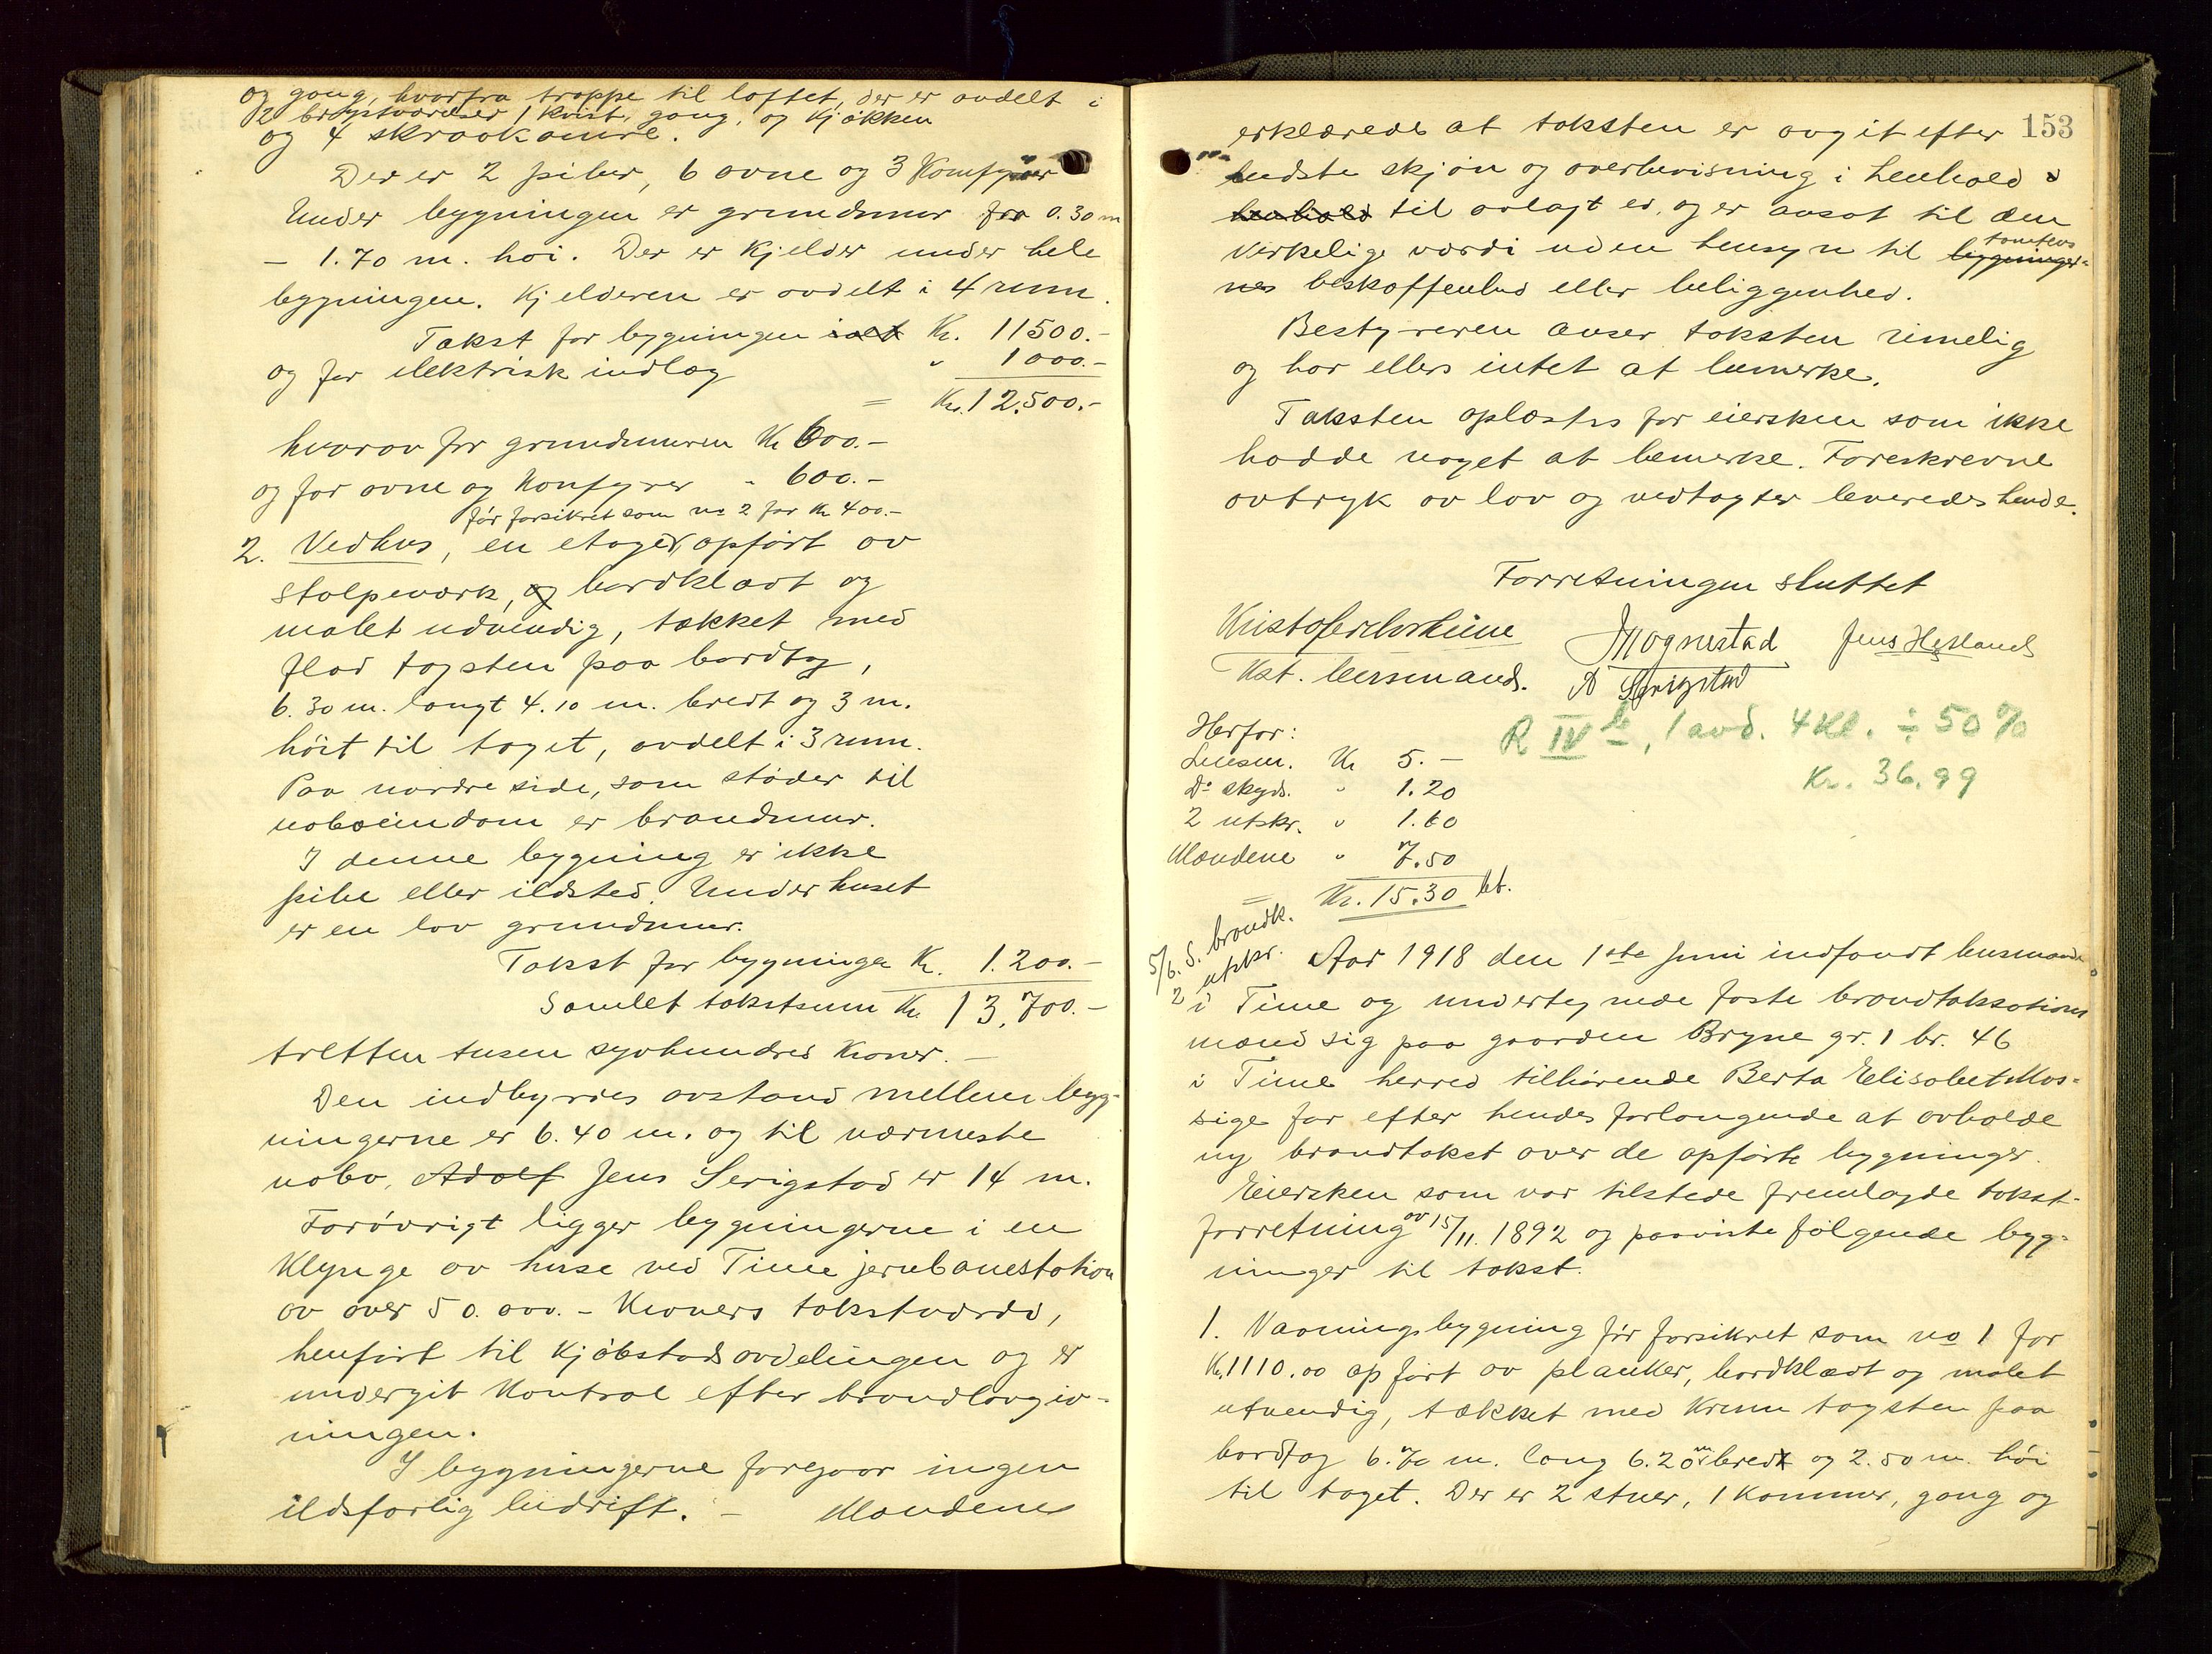 og gang, hvorfra trappe til loftet, der er avdelt i
2 brystværelser, 1 kvist, gang, og kjøkken
og 4 skraakamre.
Der er 2 piber, 6 ovne og 3 Komfyrer
Under bygningen er grundmur fra 0.30 m
– 1.70 m. høi. Der er kjelder under hele
bygningen. Kjelderen er avdelt i 4 rum.
Takst for bygningen ialt Kr. 11500.-
og for elektrisk indlæg " 1000.-
= Kr. 12.500.-
hvorav for grundmuren Kr 600.-
og for ovne og Komfyrer " 600.-
før forsikret som no 2 for Kr 400.-
2. Vedhus, en etages, opført av
stolpeværk, og bordklædt og
malet udvendig, tækket med
flad tagsten paa bordtag,
6.30 m. langt 4.10 m. bredt og 3 m.
høit til taget, avdelt i 3 rum.
Paa nordre side, som støder til
naboeiendom er brandmur.
I denne bygning er ikke
pibe eller ildsted. Under huset
er en lav grundmur.
Takst for bygningen Kr. 1.200.-
Samlet takstsum Kr. 13.700.-
tretten tusen syvhundred Kroner. –
Den indbyrdes avstand mellem byg-
ningerne er 6.40 m. og til nærmeste
nabo, Adolf Jens Serigstad er 14 m.
Forøvrigt ligger bygningerne i en
Klynge av huse ved Time jernbanestation
av over 50.000.- Kroners takstværdi,
henført til kjøbstadsavdelingen og er
undergit Kontrol efter brandlovgiv-
ningen.
I bygningerne foregaar ingen
ildsfarlig bedrift. – Mændene
153
erklærede at taksten er avgit efter
bedste skjøn og overbevisning i henhold
henhold til avlagt ed, og er ansat til den
virkelige værdi uden hensyn til bygninger-
tomtens
nes beskaffenhed eller beliggenhed.
Bestyreren anser taksten rimelig
og har ellers intet at bemerke.
Taksten oplæstes for eiersken som ikke
hadde noget at bemerke. Foreskrevne
avtryk av lov og vedtægter leveredes hende.
Forretningen sluttet
Kst. lensmand.
J Mognestad
Jens Hetland
A Serigstad
R IV b, 1 avd. 4 Kl. ÷ 50 %
Kr. 36.99
Herfor:
Lensm. Kr 5. –
Do skyds. " 1.20
2 utskr. " 1.60
Mændene " 7.50
= Kr. 15.30 bt.
5/6. S. brandk.
2 utskr.
Aar 1918 den 1ste Juni indfandt lensmanden
i Time og undertegnede faste brandtaksations
mænd sig paa gaarden Bryne gr. 1 br. 46
i Time herred tilhørende Berta Elisabet Mos-
sige for efter hendes forlangende at avholde
ny brandtakst over de opførte bygninger.
Eiersken som var tilstede fremlagde takst-
forretning av 15/11. 1892 og paaviste følgende byg-
ninger til takst.
1. Vaaningsbygning før forsikret som no 1 for
Kr. 1110.00 opført av planker, bordklædt og malet
utvendig, tækket med Krum tagsten paa
bordtag 6.70 m. lang 6.20 m bredt og 2.50 m. høi
til taget. Der er 2 stuer, 1 Kammer, gang og